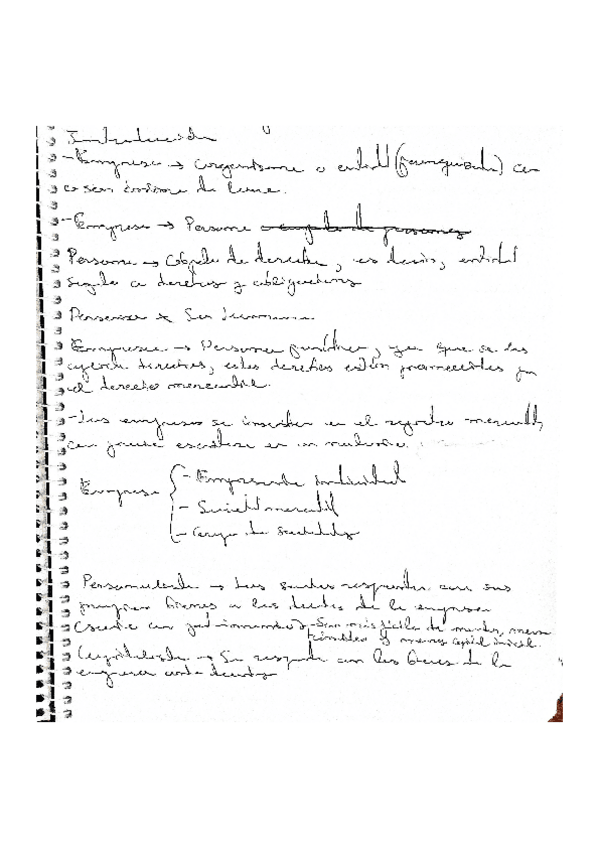 Introducción
-Empresa → organismo o entidad (             ) con
       ánimo de lucro.
-Empresa → Persona
Persona → Objeto de derecho, es decir, entidad
sujeta a derechos y obligaciones
Persona ≠ Ser humano
Empresa → Persona jurídica, ya que se les
      derechos, estos derechos están             por
el derecho mercantil.
-Las empresas se inscriben en el registro mercantil,
con previa escritura en un notario.
Empresa
- Empresario individual
- Sociedad mercantil
- Grupo de sociedades
Personalista → Los socios responden con sus
propios bienes a las deudas de la empresa
        con patrimonio) -Son más fáciles de montar, menos
trámites y menos capital inicial.
Capitalista → Se responde con los bienes de la
empresa ante deudas